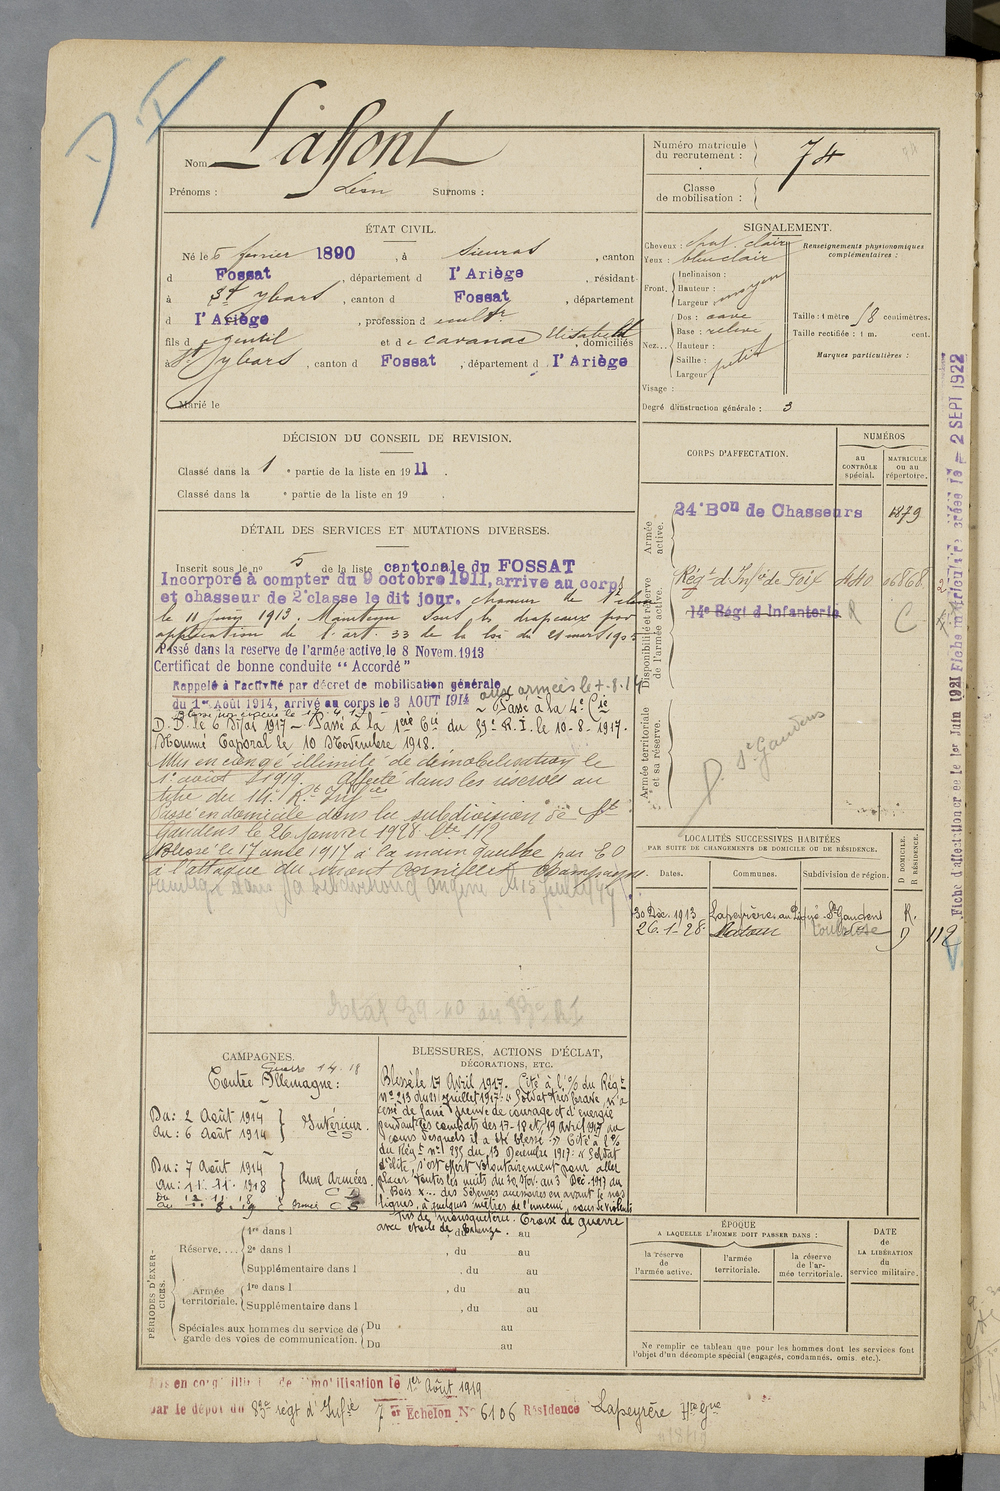 Nom Laffont
Prénoms : Léon Surnoms :
Numéro matricule du recrutement : 74
Classe de mobilisation :
ÉTAT CIVIL.
Né le 5 février 1890, à Sieuras, canton
d Fossat, département d l'Ariège, résidant
à St Ybars, canton d Fossat, département
d l'Ariège, profession d cultr
fils d e gentil et d e cavanac Elisabeth, domiciliés
à St Ybars, canton d Fossat, département d l'Ariège
Marié le
SIGNALEMENT.
Cheveux : chat. clair
Yeux : bleu clair
Front. Inclinaison :
Hauteur :
Largeur moyen
Nez... Dos : cave
Base : relevé
Hauteur :
Saillie :
Largeur petit
Visage :
Degré d'instruction générale : 3
Renseignements physionomiques complémentaires :
Taille : 1 mètre 58 centimètres.
Taille rectifiée : 1 m. cent.
Marques particulières :
DÉCISION DU CONSEIL DE REVISION.
Classé dans la 1 e partie de la liste en 1911.
Classé dans la e partie de la liste en 19 .
DÉTAIL DES SERVICES ET MUTATIONS DIVERSES.
Inscrit sous le no 5 de la liste cantonale du FOSSAT
Incorporé à compter du 9 octobre 1911, arrive au corps
et chasseur de 2e classe le dit jour. chasseur de 1e classe
le 11 juin 1913. Maintenu sous les drapeaux par
application de l'art. 33 de la loi du 21 mars 1905
Passé dans la reserve de l'armée active, le 8 Novem. 1913
Certificat de bonne conduite "Accordé"
Rappelé à l'activité par décret de mobilisation générale aux armées le 7-8-14
du 1er Août 1914, arrivé au corps le 3 AOUT 1914 Passé à la 4e Cie
D. D. le 6 Mai 1917 – Passé à la 1ère Cie du 59e R.I. le 10-8-1917.
Nommé Caporal le 10 Novembre 1918.
Mis en congé illimité de démobilisation le
1e août 1919. Affecté dans les réserves au
titre du 14e Rt Infie
Passé en domicile dans la subdivision de St
Gaudens le 26 Janvier 1928 Cte 112
Blessé le 17 avril 1917 à la main gauche par E O
à l'attaque du mont Cornillet Champagne.
39-40 au 83e RI
CORPS D'AFFECTATION.
NUMÉROS
au CONTRÔLE spécial.
MATRICULE ou au répertoire.
Armée active.
24e Bon de Chasseurs 1879
Disponibilité et réserve de l'armée active.
Régt d'Infie de Foix 06868
14e Régt d'Infanterie R C
Armée territoriale et sa réserve.
St Gaudens
LOCALITÉS SUCCESSIVES HABITÉES
PAR SUITE DE CHANGEMENTS DE DOMICILE OU DE RÉSIDENCE.
Dates. Communes. Subdivision de région. D DOMICILE. R RÉSIDENCE.
30 Déc. 1913 Lapeyrère St Gaudens R.
26-1-28 Toulouse D 112
Fiche d'affectation créée le 1er Juin 1921 Fiche matricule créée le 2 SEPT 1922
CAMPAGNES.
Guerre 14-18
Contre Allemagne :
Du : 2 Août 1914
Au : 6 Août 1914 } Intérieur. CS
Du : 7 Août 1914
Au : 11.11.1918 } Aux Armées. CD
Du 12.11.18
BLESSURES, ACTIONS D'ÉCLAT,
DÉCORATIONS, ETC.
Blessé le 17 Avril 1917. Cité à l'O/ du Régt
no 213 du 21 Juillet 1917. "Soldat très brave, n'a
cessé de faire preuve de courage et d'énergie
pendant les combats des 17-18 et 19 avril 1917 au
cours desquels il a été blessé" Cité à l'O/
du Régt no 235 du 13 Décembre 1917. "Soldat
d'élite, s'est offert volontairement pour aller
placer toutes les nuits du 30 Nov. au 3 Déc. 1917 au
Bois X... des défenses accessoires en avant de nos
lignes, à quelques mètres de l'ennemi, sous de violents
tirs de mousqueterie. Croix de guerre
avec étoile de bronze.
PÉRIODES D'EXERCICES.
Réserve, ... 1re dans l , du au
2e dans l , du au
Supplémentaire dans l , du au
Armée territoriale. 1re dans l , du au
Supplémentaire dans l , du au
Spéciales aux hommes du service de garde des voies de communication. Du au
Du au
ÉPOQUE
A LAQUELLE L'HOMME DOIT PASSER DANS :
la réserve de l'armée active.
l'armée territoriale.
la réserve de l'armée territoriale.
DATE de LA LIBÉRATION du service militaire.
Ne remplir ce tableau que pour les hommes dont les services font
l'objet d'un décompte spécial (engagés, condamnés, omis, etc.).
Mis en congé illimité de démobilisation le 1er Août 1919
par le dépôt du 83e régt d'Infie 7 er Echelon No 6106 Résidence Lapeyrère Hte Gne